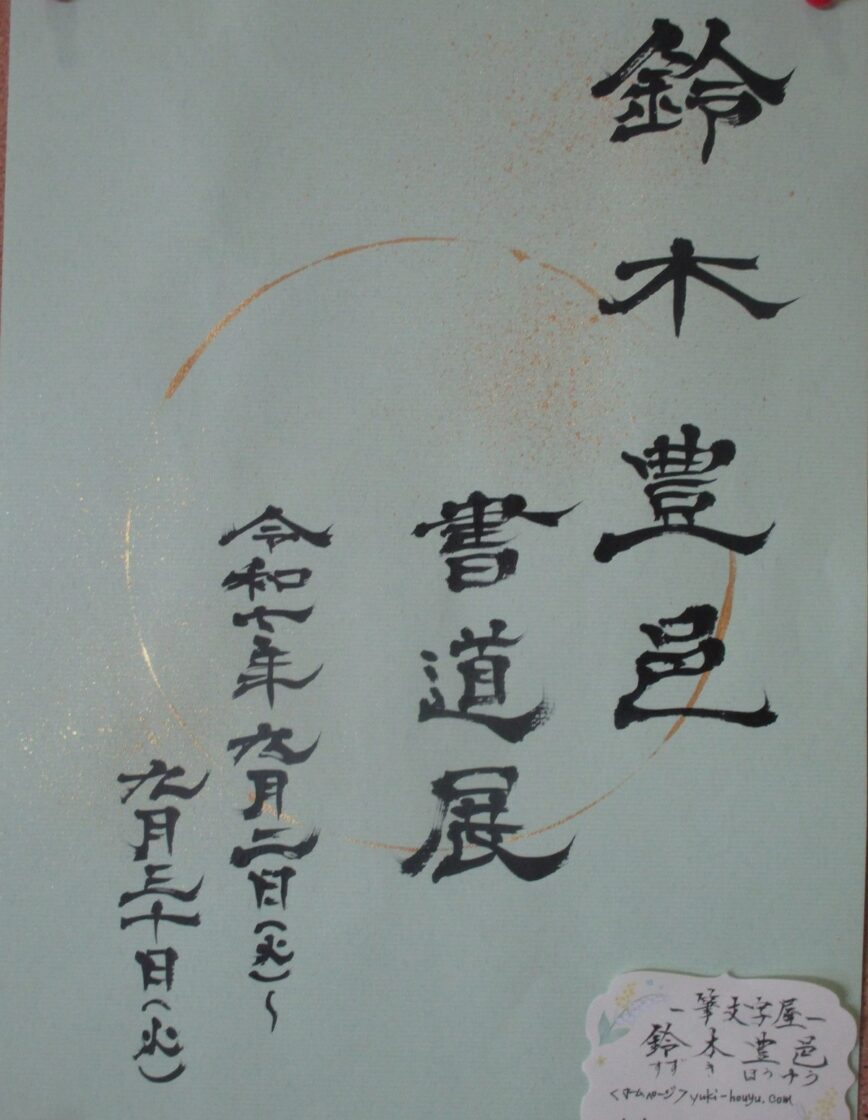 鈴木豊邑
書道展
令和七年九月二日(火)～
九月三十日(火)
-筆文字屋-
鈴木 豊邑
すずき ほうゆう
<ホームページ>yuki-houyu.com